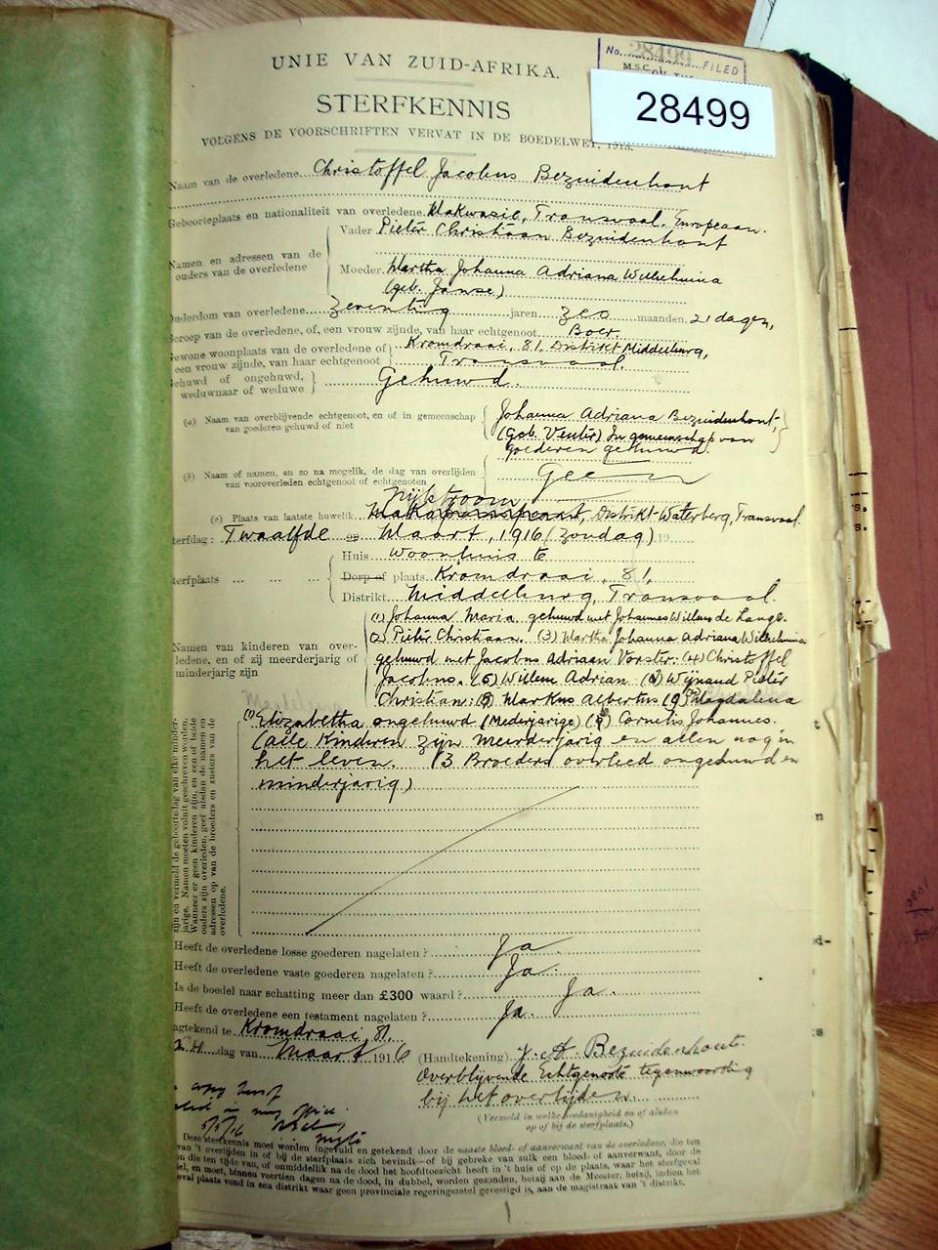 UNIE VAN ZUID-AFRIKA.
No. 28499 FILED
M.S.C.
28499
STERFKENNIS
VOLGENS DE VOORSCHRIFTEN VERVAT IN DE BOEDELWET, 1913.
Naam van de overledene Christoffel Jacobus Bezuidenhout
Geboorteplaats en nationaliteit van overledene Makwasie, Transvaal. Europeaan.
Namen en adressen van de ouders van de overledene
Vader Pieter Christiaan Bezuidenhout
Moeder Martha Johanna Adriana Wilhelmina
(geb. Janse)
Ouderdom van overledene Zeventig jaren zes maanden 21 dagen,
Beroep van de overledene, of, een vrouw zijnde, van haar echtgenoot Boer.
Gewone woonplaats van de overledene of een vrouw zijnde, van haar echtgenoot
Kromdraai, 81, Distrikt Middelburg,
Transvaal.
Gehuwd of ongehuwd, weduwnaar of weduwe
Gehuwd.
(a) Naam van overblijvende echtgenoot, en of in gemeenschap van goederen gehuwd of niet
Johanna Adriana Bezuidenhout,
(Geb. Venter) In gemeenschap van
Goederen gehuwd.
(b) Naam of namen, en zo na mogelik, de dag van overlijden van vooroverleden echtgenoot of echtgenoten
Geen
Nijlstroom
(c) Plaats van laatste huwelik Distrikt Waterberg, Transvaal
Sterfdag: Twaalfde Maart, 1916 (Zondag) 19
Sterfplaats
Huis Woonhuis te
Dorp of plaats Kromdraai, 81,
Distrikt Middelburg, Transvaal.
Namen van kinderen van overledene, en of zij meerderjarig of minderjarig zijn
(1) Johanna Maria gehuwd met Johannes Willem de Lange.
(2) Pieter Christiaan. (3) Martha Johanna Adriana Wilhelmina
gehuwd met Jacobus Adriaan Vorster. (4) Christoffel
Jacobus. (5) Willem Adrian. (6) Wijnand Pieter
Christian: Markus Albertus Magdalena
Elizabetha ongehuwd (Mederjarige) Cornelis Johannes.
(alle Kinderen zijn meerderjarig en allen nog in
het leven. (3 Broeders overleed ongehuwd en
minderjarig)
zijn en vermeld de geboortedag van elke minderjarige. Namen moeten voluit geschreven worden.
Wanneer er geen kinderen zijn, en een of beide ouders zijn overleden, geef alsdan de namen en adressen op van de broeders en zusters van de overledene.
Heeft de overledene losse goederen nagelaten? Ja
Heeft de overledene vaste goederen nagelaten? Ja.
Is de boedel naar schatting meer dan £300 waard? Ja.
Heeft de overledene een testament nagelaten? Ja.
Kromdraai, 81,
dag van Maart 1916 (Handtekening) J. A. Bezuidenhout.
Overblijvende Echtgenote tegenwoordig
bij het overlijden.
(Vermeld in welke hoedanigheid en of alsdan
op of bij de sterfplaats.)
Deze sterfkennis moet worden ingevuld en getekend door de naaste bloed- of aanverwant van de overledene, die ten
van 't overlijden in of bij de sterfplaats zich bevindt—of bij gebreke van zulk een bloed- of aanverwant, door de
die ten tijde van, of onmiddellik na de dood het hoofdtoezicht heeft in 't huis of op de plaats, waar het sterfgeval
en moet, binnen veertien dagen na de dood, in dubbel, worden gezonden, hetzij aan de Meester, hetzij, indien het
geval plaats vond in een distrikt waar geen provinciale regeringszetel gevestigd is, aan de magistraat van 't distrikt.